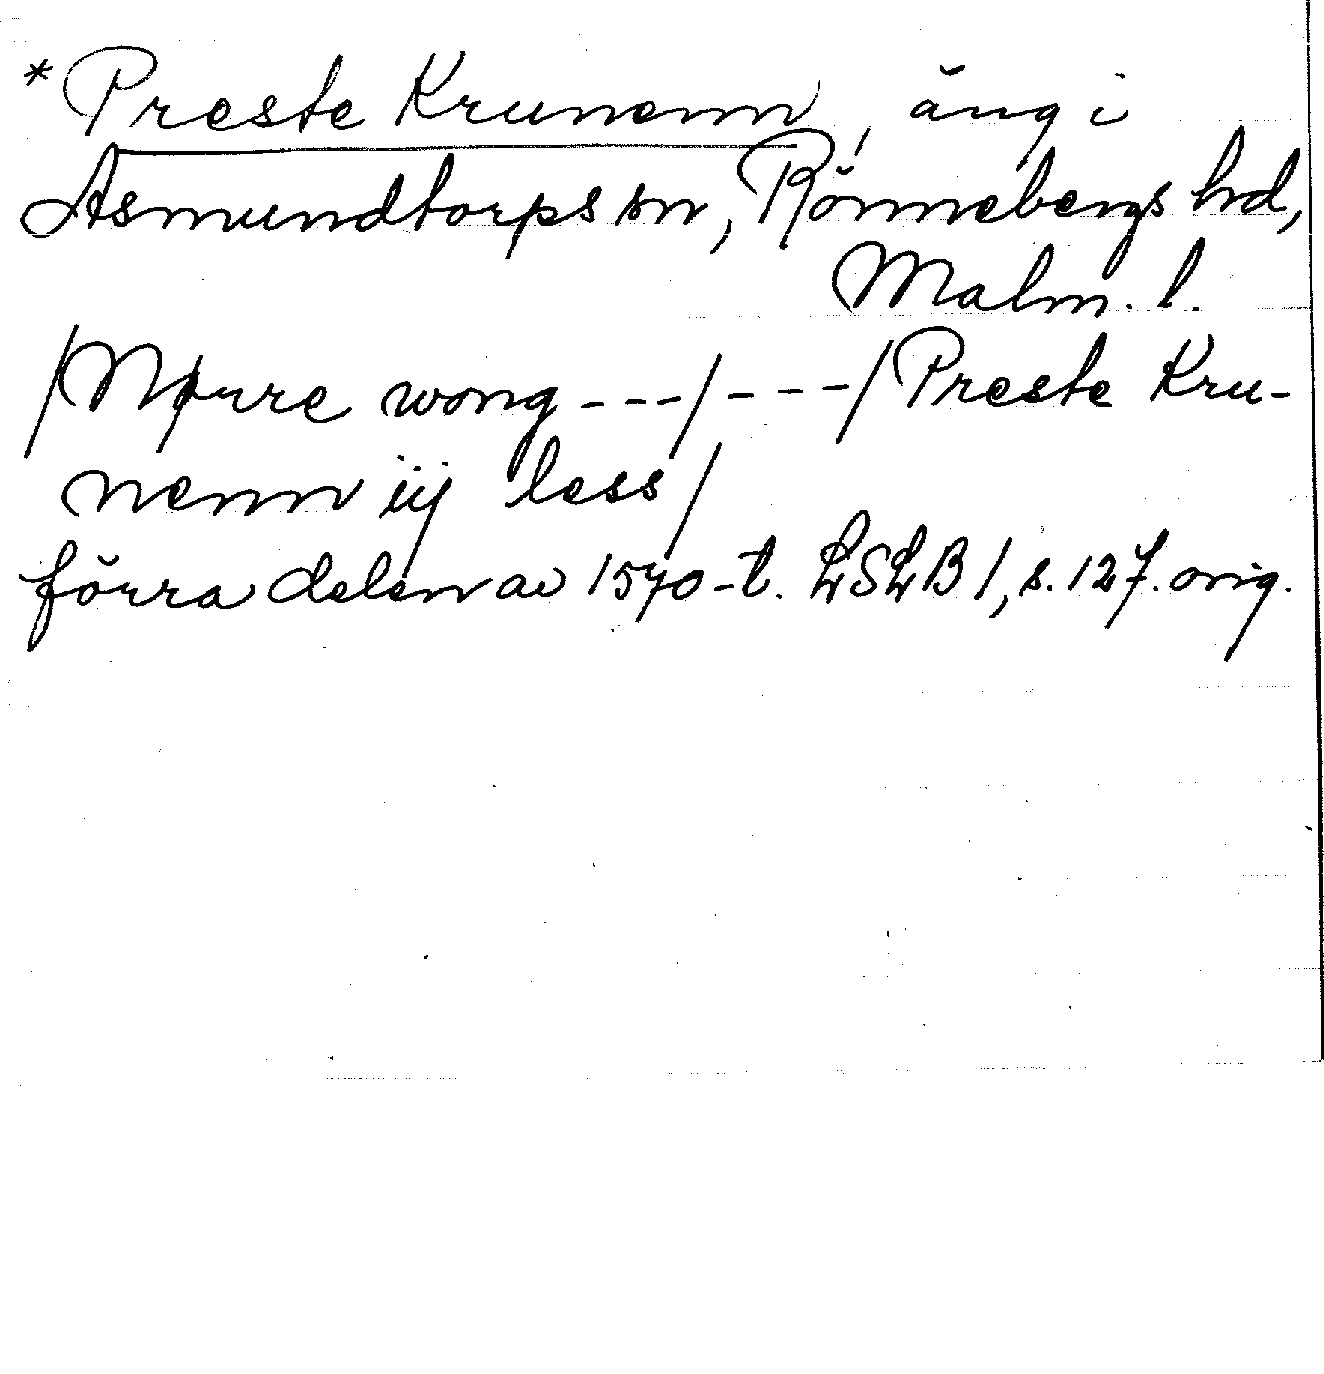 *Preste Krunenn, äng i
Asmundtorps sn, Rönnebergs hd,
Malm. l.
/Nørre wong ---/ - --/Preste Kru-
nenn iij less/
förra delen av 1570-t. LSLB 1, s. 127. orig.